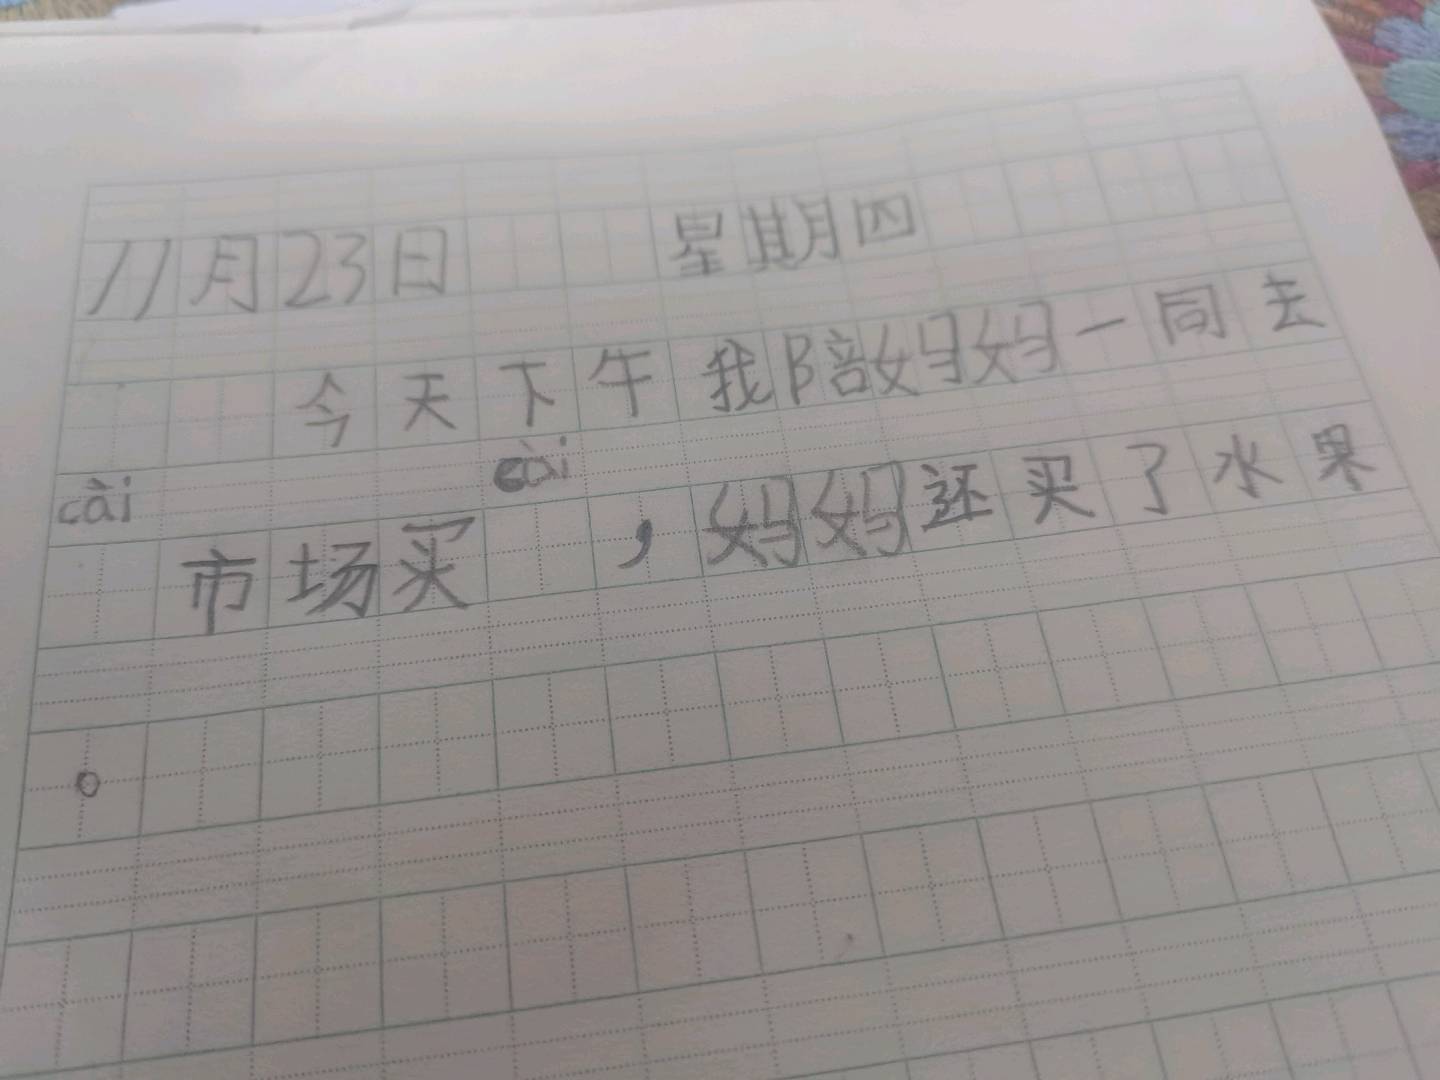 11月23日 星期四
今天下午我陪妈妈一同去
cài市场买cài，妈妈还买了水果
。